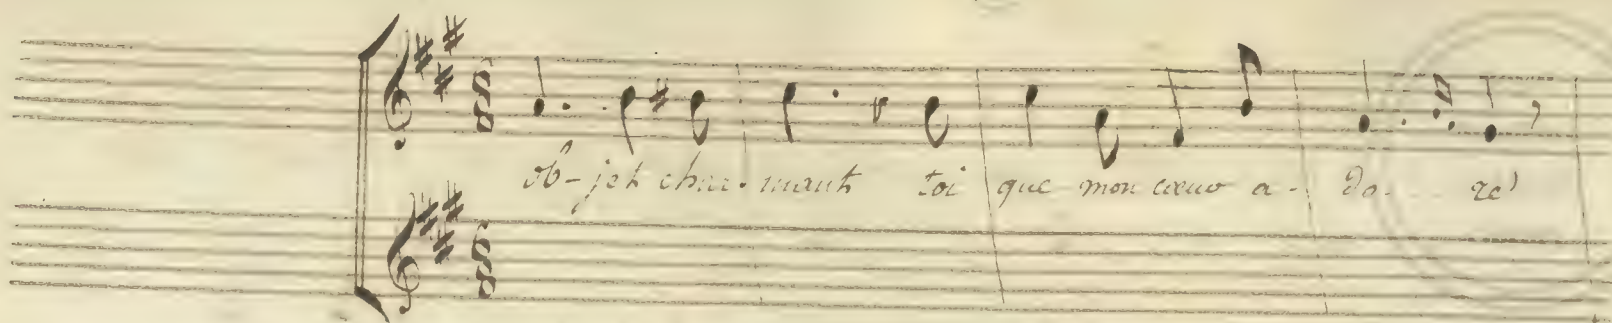 ob-jet char-mant toi que mon cœur a-do-re